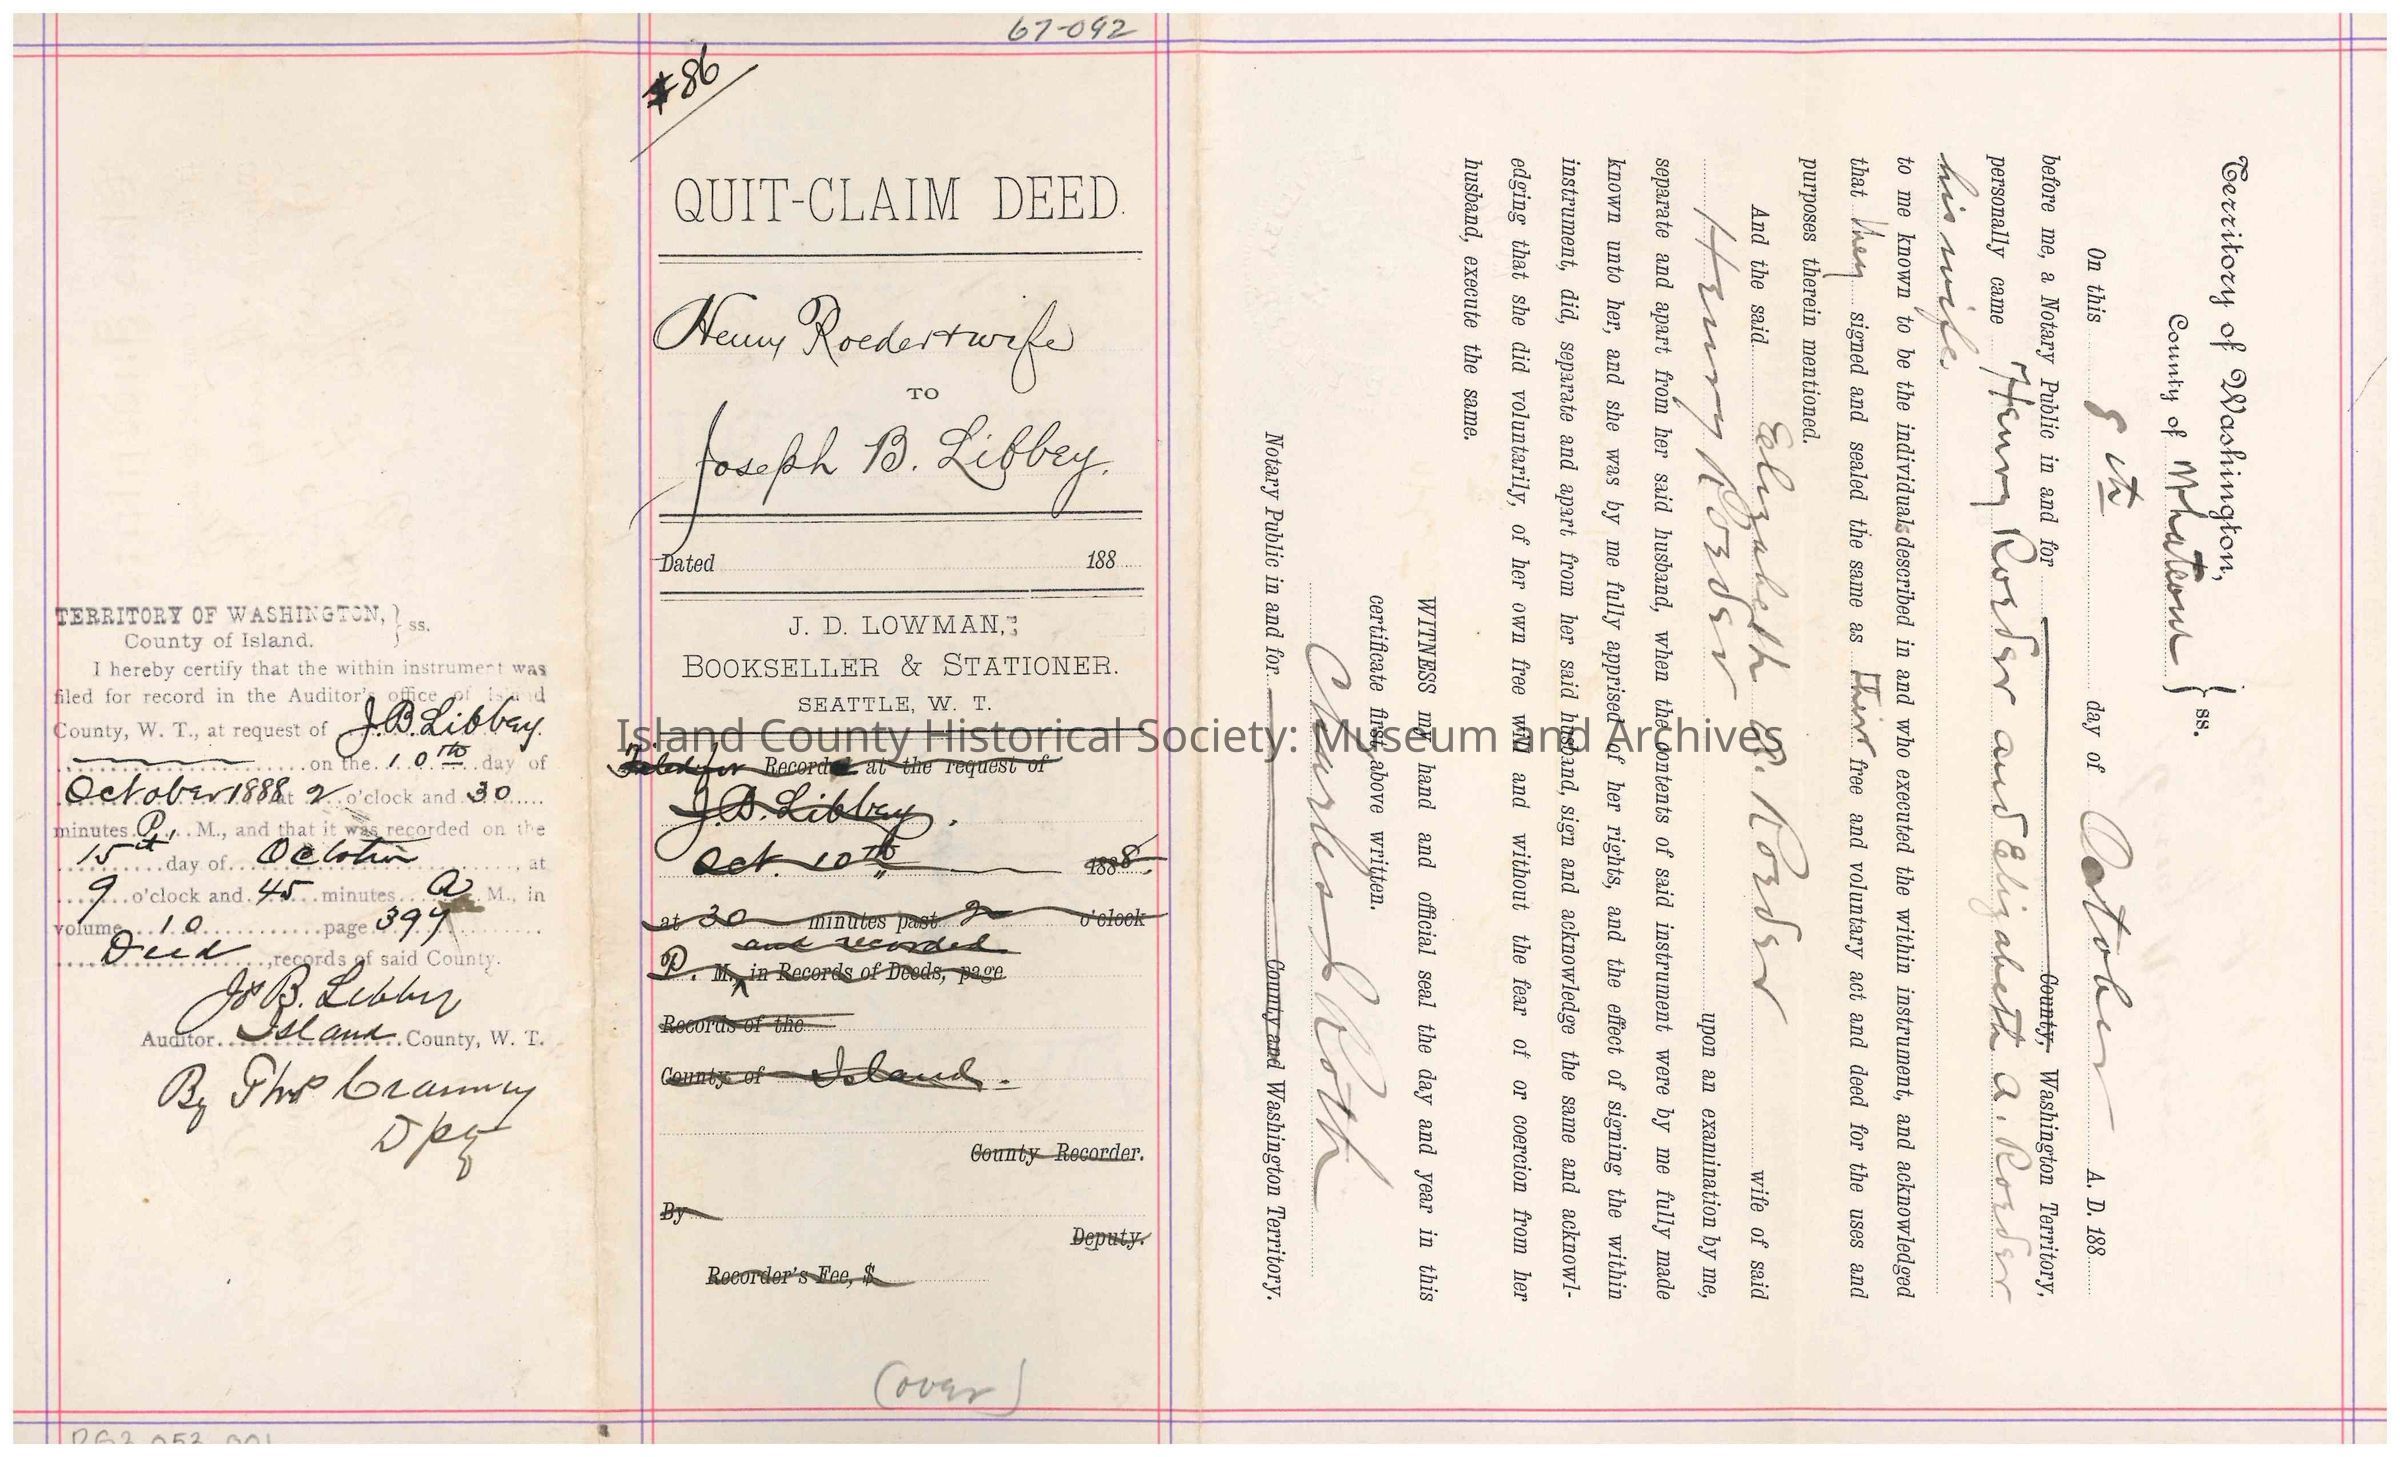 67-092
#86
QUIT-CLAIM DEED.
Henry Roeder & wife
TO
Joseph B. Libbey.
Dated 188
J. D. LOWMAN,
BOOKSELLER & STATIONER.
SEATTLE, W. T.
Filed for Record at the request of
J. B. Libbey.
Oct. 10th 1888.
at 30 minutes past 2 o'clock
and recorded
P. M., in Records of Deeds, page
Records of the
County of Island.
County Recorder.
By
Deputy.
Recorder's Fee, $
(over)
TERRITORY OF WASHINGTON, } ss.
County of Island.
I hereby certify that the within instrument was
filed for record in the Auditor's office of Island
County, W. T., at request of J. B. Libbey.
on the 10th day of
October 1888 at 2 o'clock and 30
minutes P. M., and that it was recorded on the
15th day of October, at
9 o'clock and 45 minutes A M., in
volume 10 page 397
Deed, records of said County.
Jos B. Libbey
Auditor Island County, W. T.
By Thos Cranney
Dpy
Territory of Washington, } ss.
County of Whatcom
On this 8th day of October A. D. 188
before me, a Notary Public in and for County, Washington Territory,
personally came Henry Roeder and Elizabeth A. Roeder
his wife.
to me known to be the individuals described in and who executed the within instrument, and acknowledged
that they signed and sealed the same as their free and voluntary act and deed for the uses and
purposes therein mentioned.
And the said Elizabeth A. Roeder wife of said
Henry Roeder upon an examination by me,
separate and apart from her said husband, when the contents of said instrument were by me fully made
known unto her, and she was by me fully apprised of her rights, and the effect of signing the within
instrument, did, separate and apart from her said husband, sign and acknowledge the same and acknowl-
edging that she did voluntarily, of her own free will and without the fear of or coercion from her
husband, execute the same.
WITNESS my hand and official seal the day and year in this
certificate first above written.
Charles I. Roth
Notary Public in and for County and Washington Territory.
Island County Historical Society: Museum and Archives